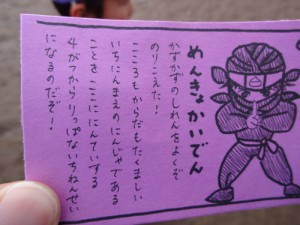 めんきょかいでん
かずかずのしれんをよくぞ
のりこえた！
こころもからだもたくましい
いちにんまえのにんじゃである
ことをここににんていする
4がつからりっぱないちねんせい
になるのだぞ！